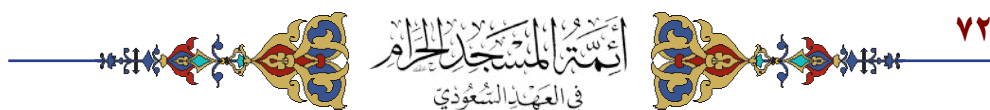 ٧٢
أَئِمَّةُ المَسْجِدِ الحَرَامِ
في العَهْدِ السُّعُودِيِّ